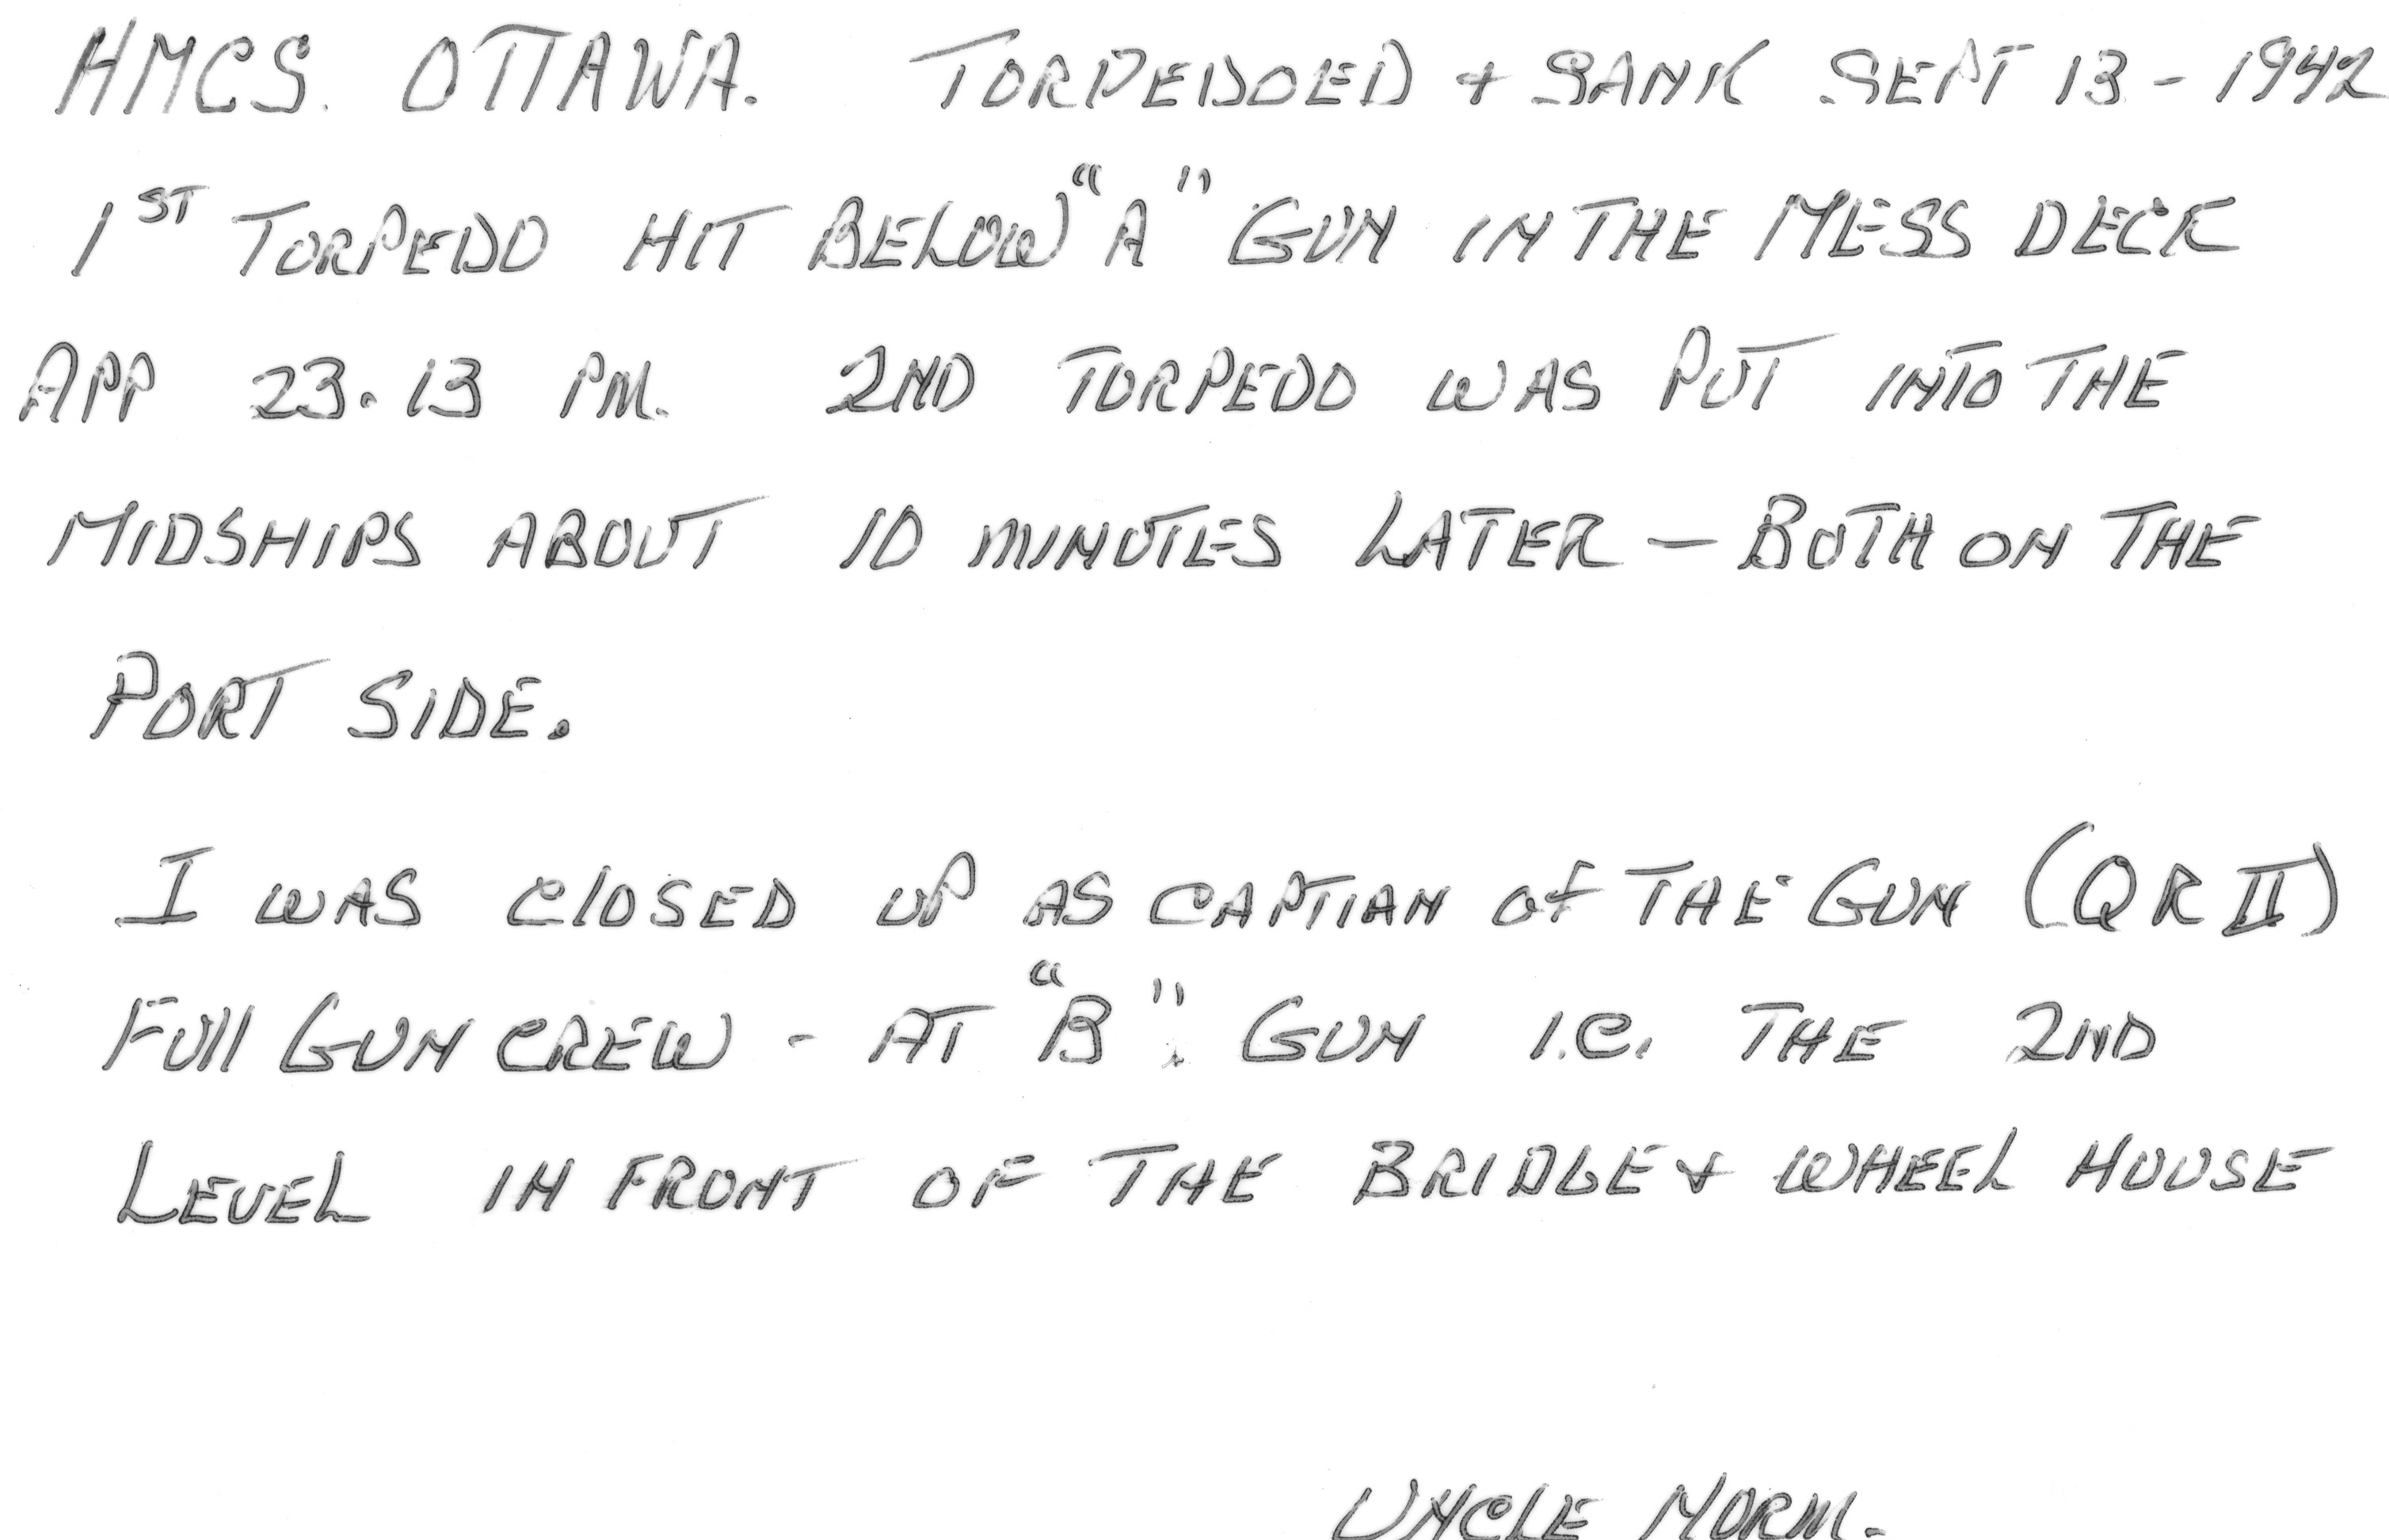 HMCS. OTTAWA. TORPEDOED + SANK SEPT 13 - 1942
1ST TORPEDO HIT BELOW "A" GUN IN THE MESS DECK
APP 23.13 PM. 2ND TORPEDO WAS PUT INTO THE
MIDSHIPS ABOUT 10 MINUTES LATER - BOTH ON THE
PORT SIDE.
I WAS CLOSED UP AS CAPTIAN of THE GUN (QR II)
FUll GUN CREW - AT "B". GUN I.E. THE 2ND
LEVEL IN FRONT OF THE BRIDGE + WHEEL HOUSE
UNCLE NORM.